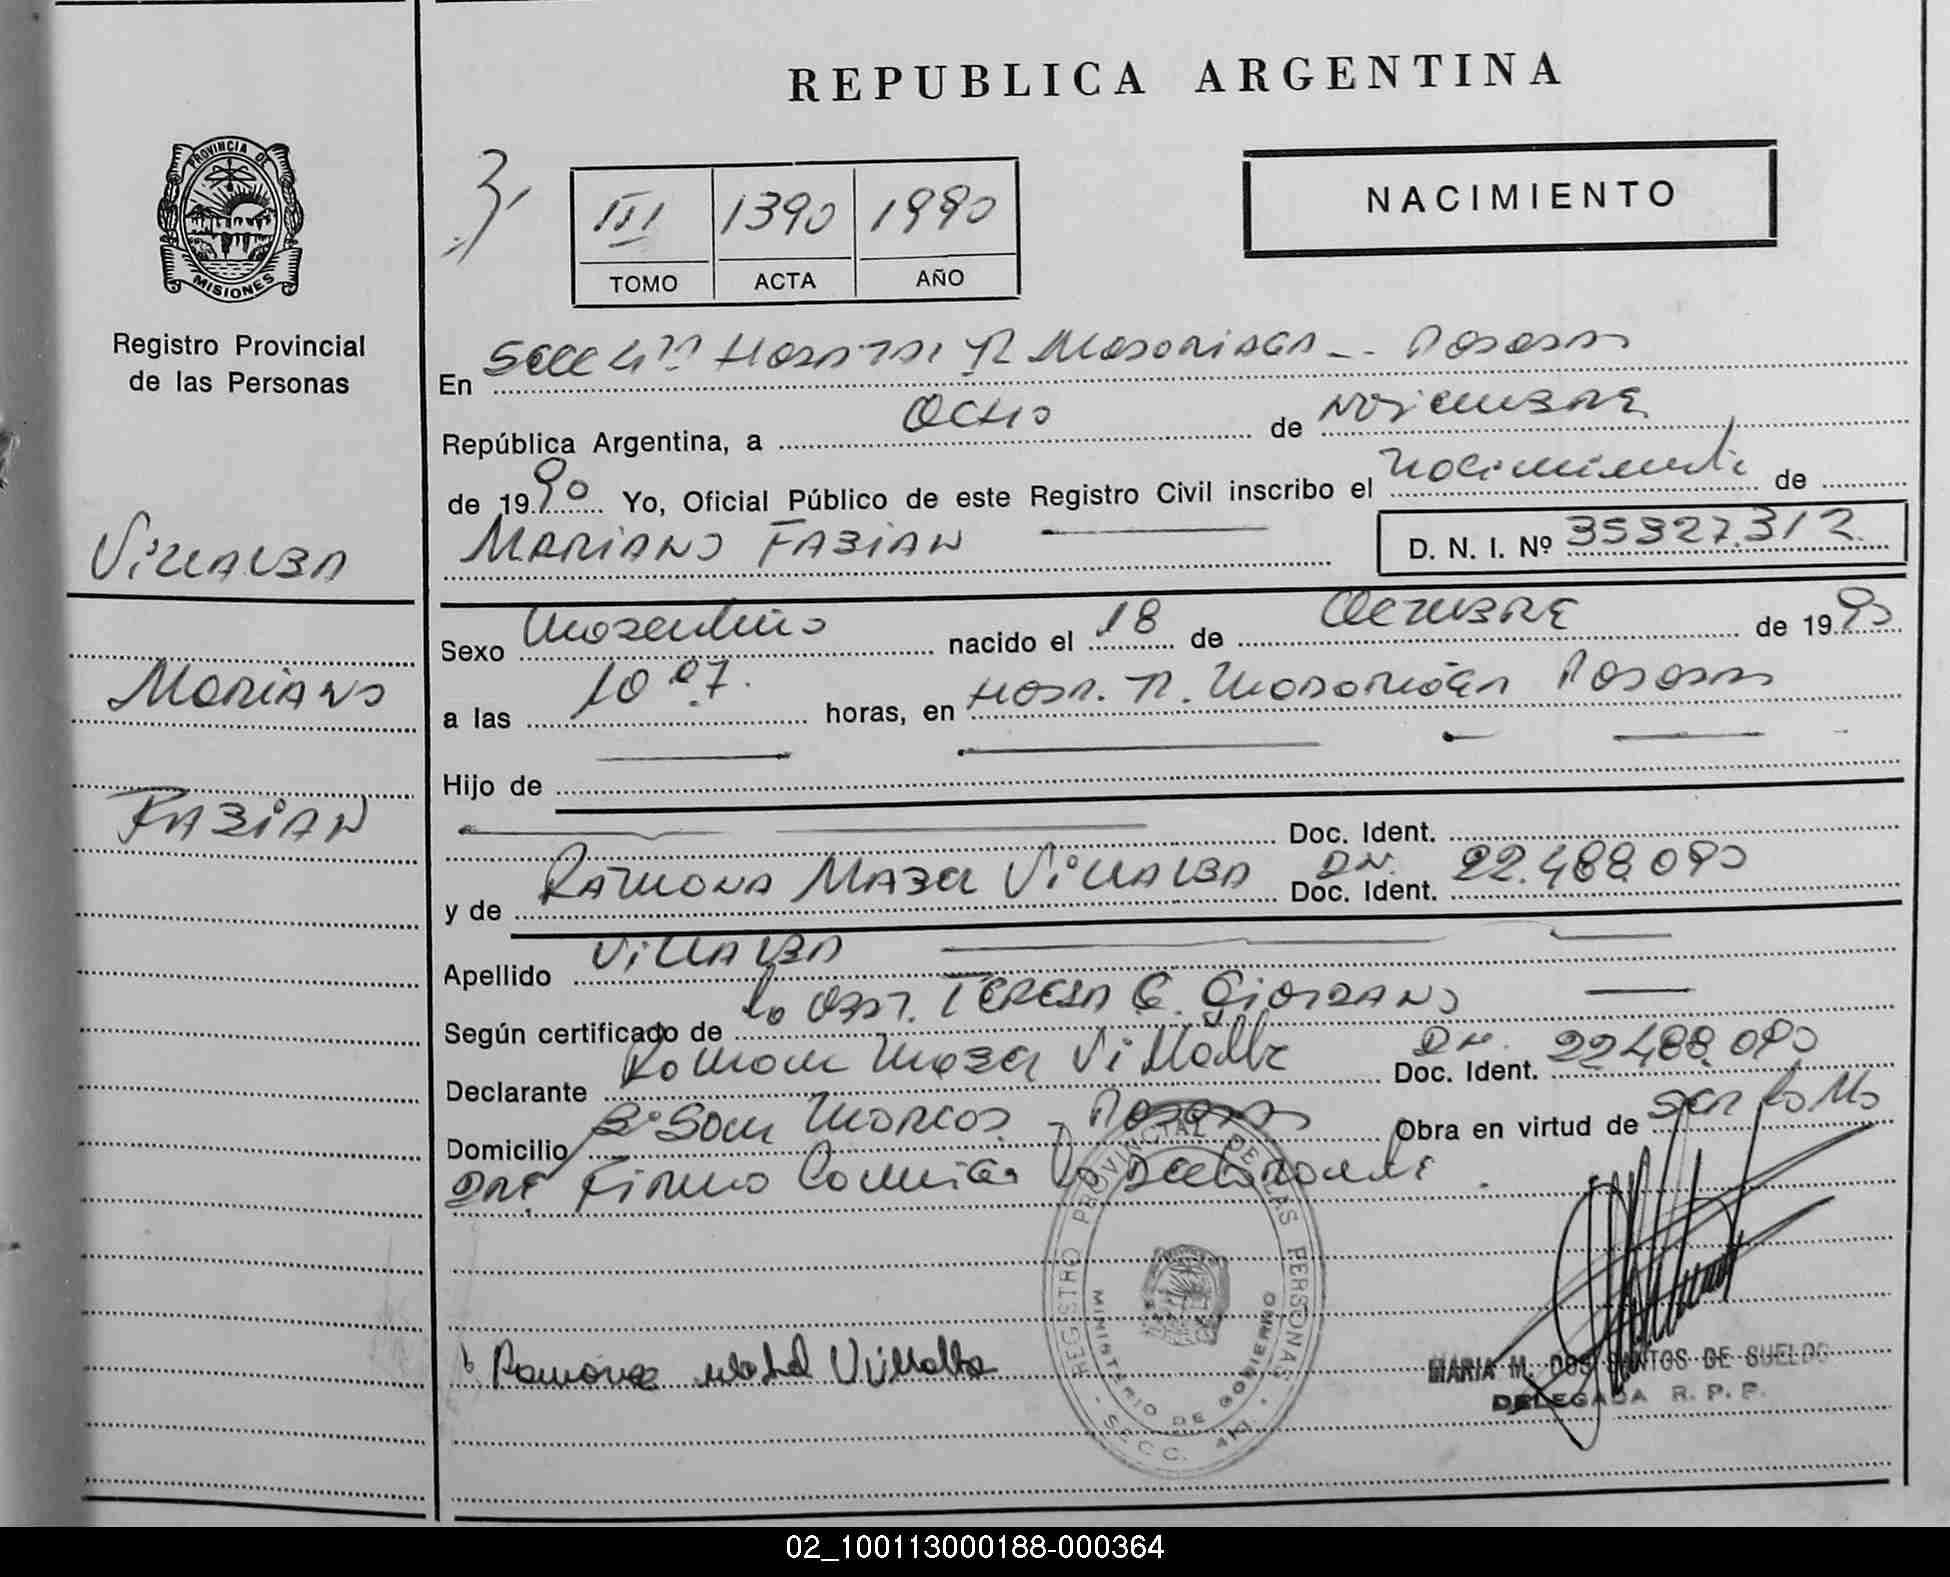 REPUBLICA ARGENTINA
PROVINCIA DE
MISIONES
Registro Provincial
de las Personas
NACIMIENTO
III 1390 1990
TOMO ACTA AÑO
En Secc 4ta Hospital R Madariaga - Posadas
República Argentina, a Ocho de Noviembre
de 1990 Yo, Oficial Público de este Registro Civil inscribo el nacimiento de
MARIANO FABIAN D. N. I. Nº 35327.312
VILLALBA
Sexo Masculino nacido el 18 de Octubre de 1990
MARIANO
a las 10 07. horas, en Hosp. R. Madariaga Posadas
Hijo de
FABIAN
Doc. Ident.
y de RAMONA MABEL VILLALBA Doc. Ident. DN. 22.488.090
Apellido VILLALBA
Según certificado de la Obst. TERESA G. GIORDANO
Declarante Ramona Mabel Villalba Doc. Ident. DN. 22488.090
Domicilio Bº San Marcos - Posadas Obra en virtud de ser la
firma la Declarante
REGISTRO PROVINCIAL DE LAS PERSONAS
MINISTERIO DE GOBIERNO
SECC. 4ta
Ramona Mabel Villalba
MARIA M. DOS SANTOS DE SUELDO
DELEGADA R. P. P.
02_100113000188-000364